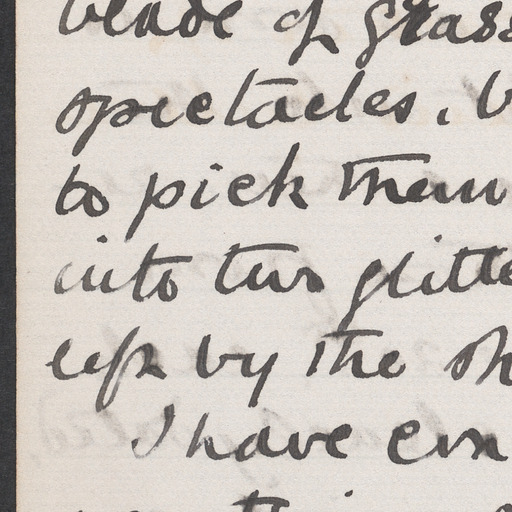 blade of grass
spectacles, b
to pick them
into two glitte
up by the sh
I have con